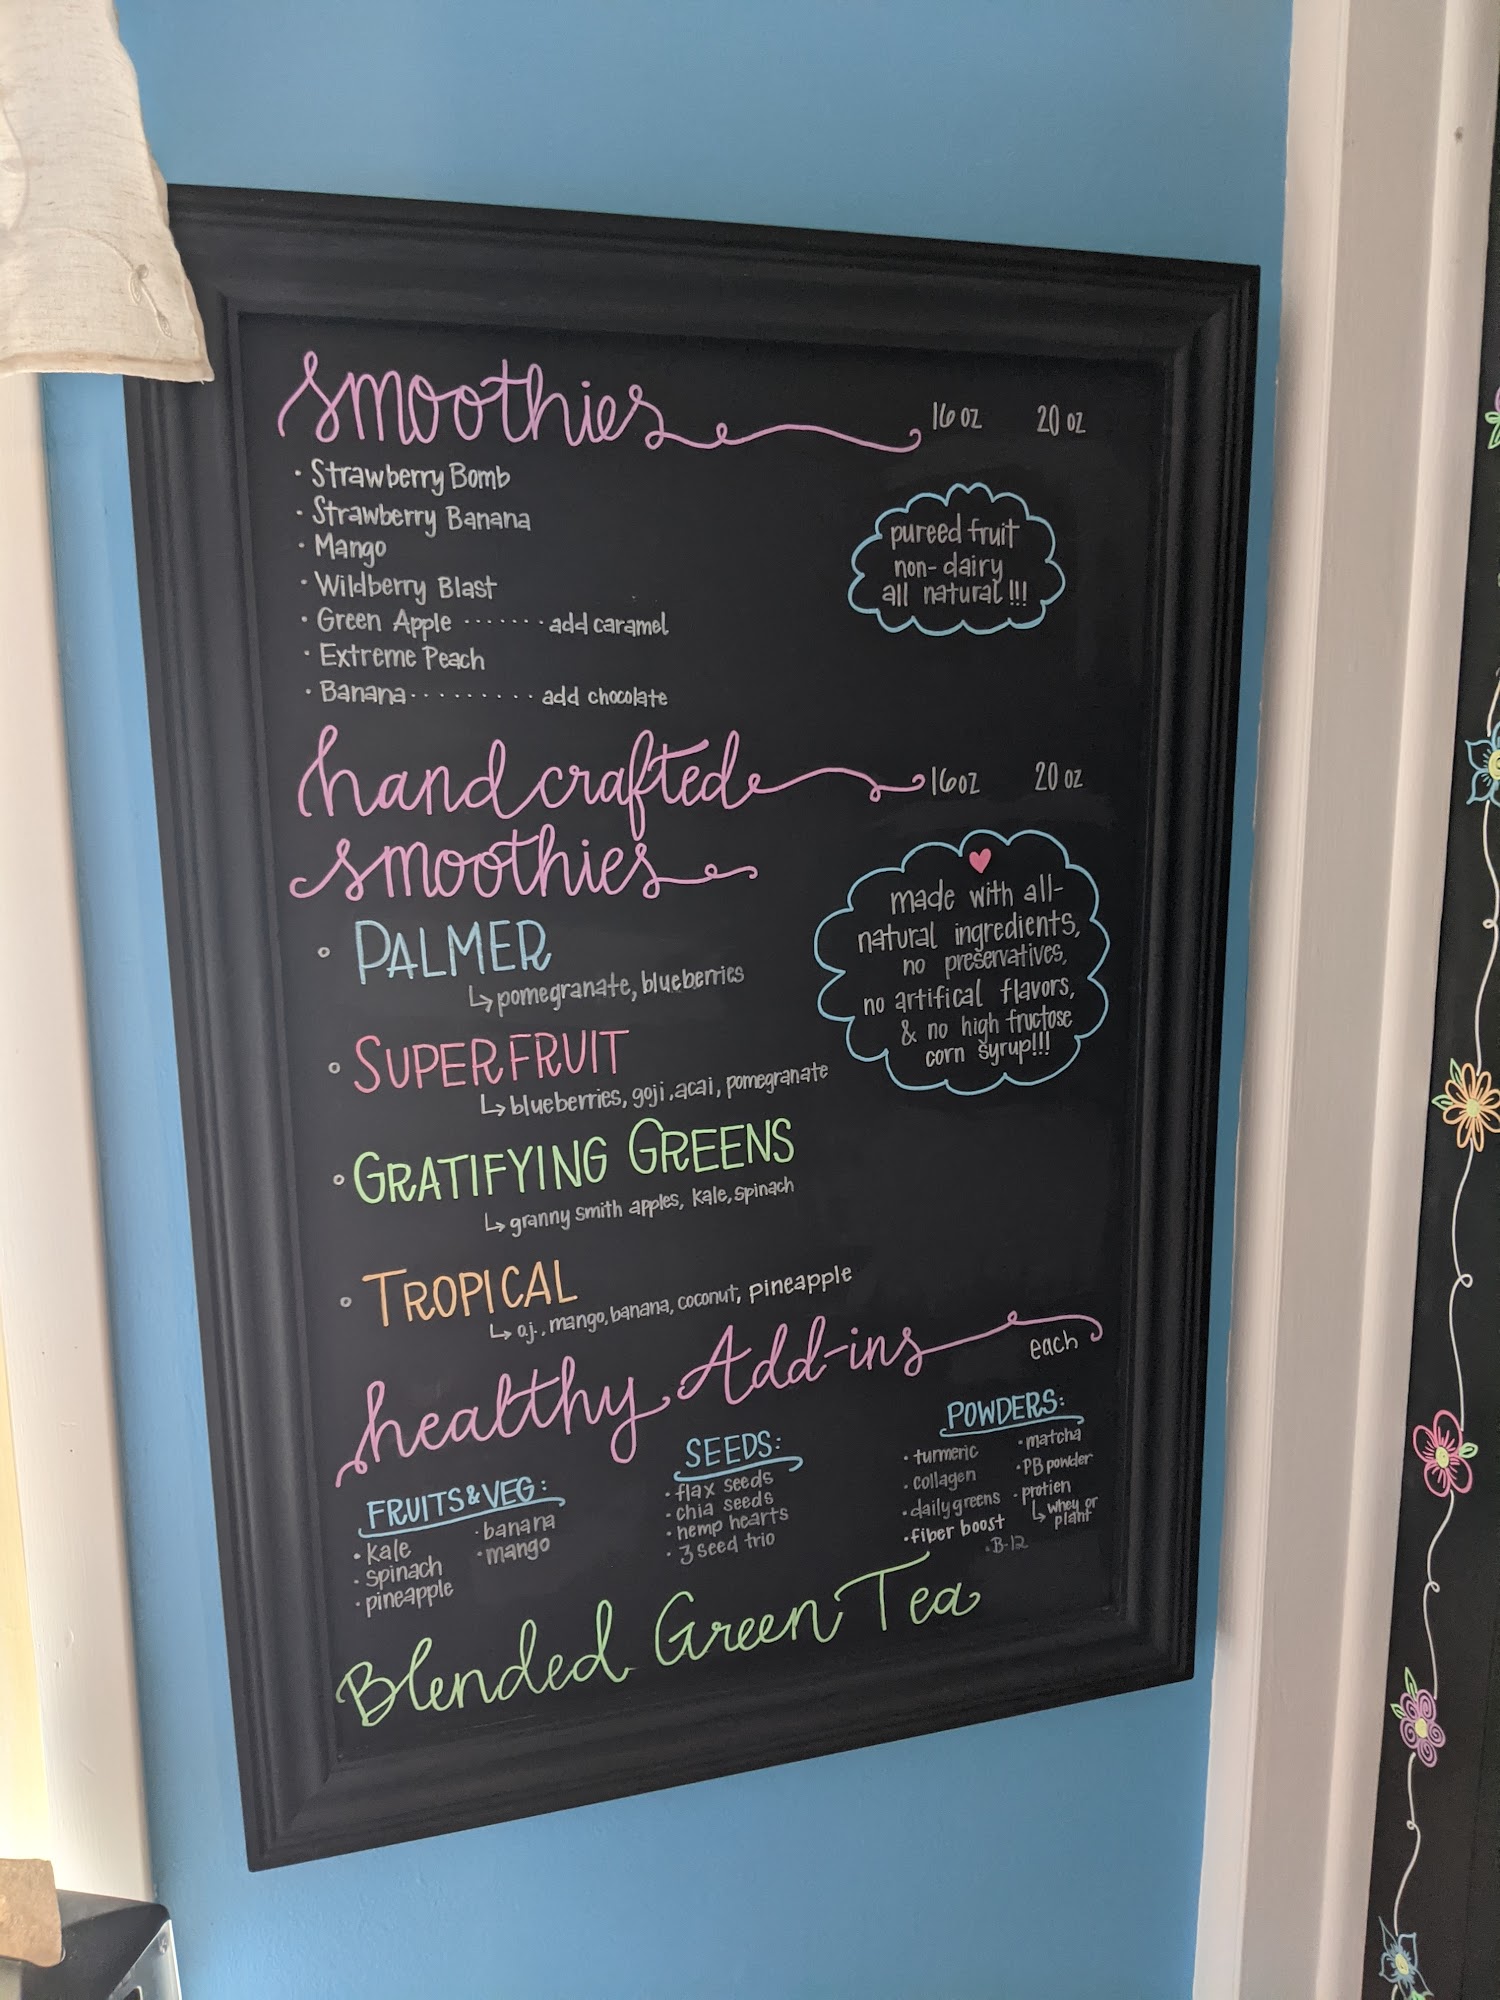 smoothies 16 oz 20 oz
· Strawberry Bomb
· Strawberry Banana
· Mango
· Wildberry Blast
· Green Apple ······· add caramel
· Extreme Peach
· Banana ········· add chocolate
pureed fruit
non-dairy
all natural!!!
handcrafted 16oz 20 oz
smoothies
PALMER
↳ pomegranate, blueberries
SUPERFRUIT
↳ blueberries, goji, acai, pomegranate
GRATIFYING GREENS
↳ granny smith apples, kale, spinach
TROPICAL
↳ o.j., mango, banana, coconut, pineapple
made with all-
natural ingredients,
no preservatives,
no artifical flavors,
& no high fructose
corn syrup!!!
healthy Add-ins each
FRUITS & VEG:
· kale
· spinach
· pineapple
· banana
· mango
SEEDS:
· flax seeds
· chia seeds
· hemp hearts
· 3 seed trio
POWDERS:
· turmeric
· collagen
· daily greens
· fiber boost
· matcha
· PB powder
· protien
↳ whey or
plant
· B-12
Blended Green Tea